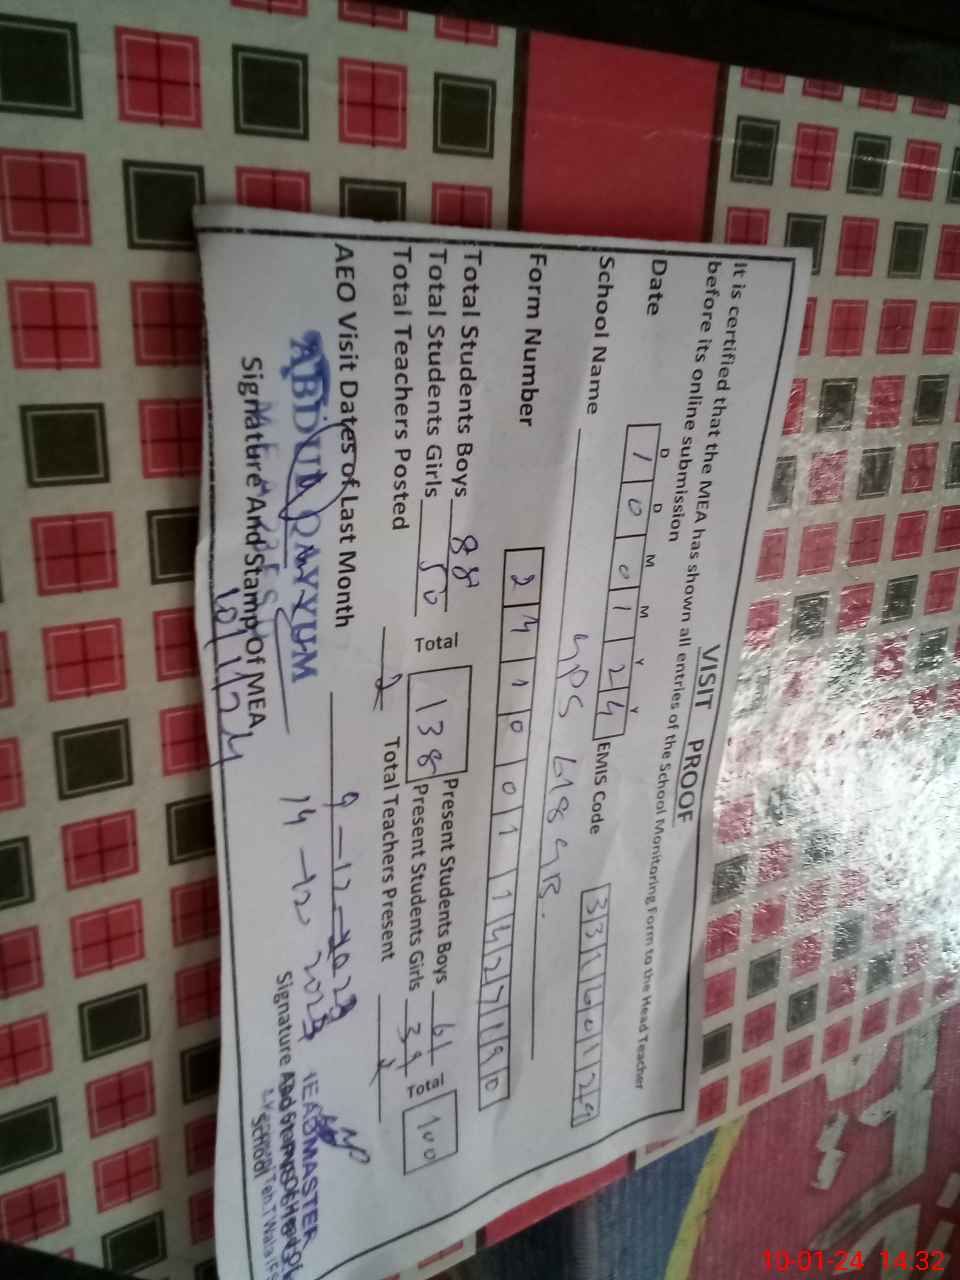 VISIT PROOF
It is certified that the MEA has shown all entries of the School Monitoring Form to the Head Teacher
before its online submission
D D M M Y Y
Date 1 0 0 1 2 4 EMIS Code
School Name GPS 618 GB.
Form Number 2 4 1 0 0 1 1 4 2
Total Students Boys 88 Total 138 Present Students Boys 61 Total 100
Total Students Girls 50 Present Students Girls 39
Total Teachers Posted 2 Total Teachers Present 2
AEO Visit Dates of Last Month 9-12-2023
14-12-2023
ABDUL QAYYUM HEADMASTER
Signature And Stamp Of MEA Signature And Stamp Of Head Of
School
10/1/24
10-01-24 14:32